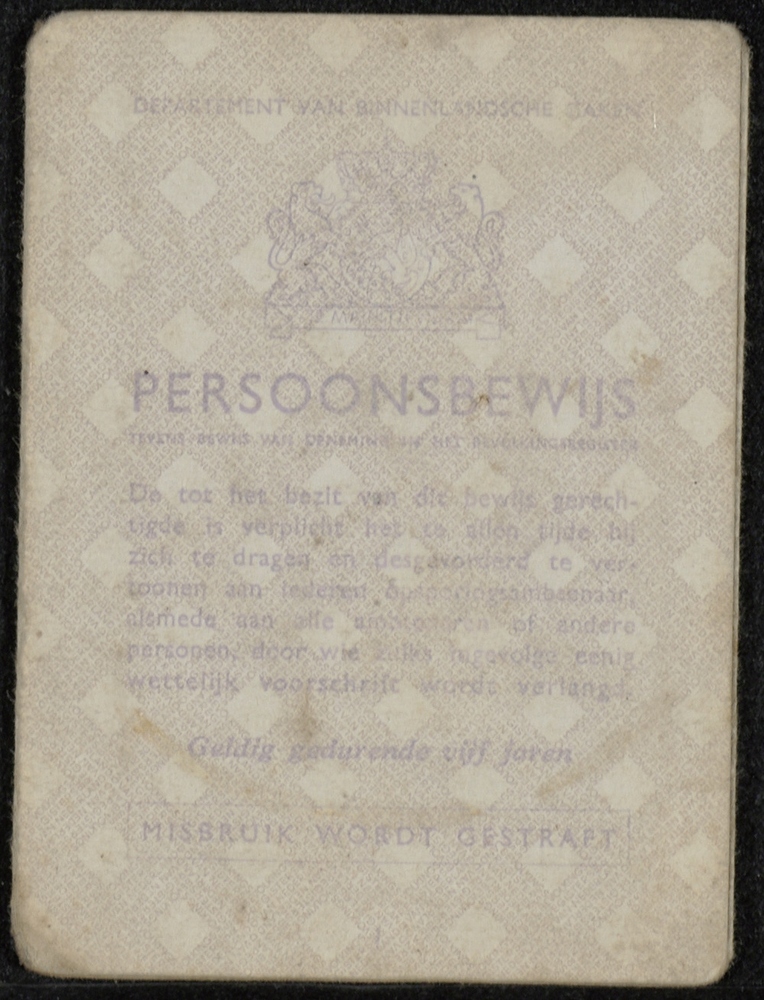 DEPARTEMENT VAN BINNENLANDSCHE ZAKEN
PERSOONSBEWIJS
TEVENS BEWIJS VAN OPNEMING IN HET BEVOLKINGSREGISTER
De tot het bezit van dit bewijs gerech-
tigde is verplicht het te allen tijde bij
zich te dragen en desgevorderd te ver-
toonen aan iederen opsporingsambtenaar,
alsmede aan alle ambtenaren of andere
personen, door wie zulks ingevolge eenig
wettelijk voorschrift wordt verlangd.
Geldig gedurende vijf jaren
MISBRUIK WORDT GESTRAFT
1